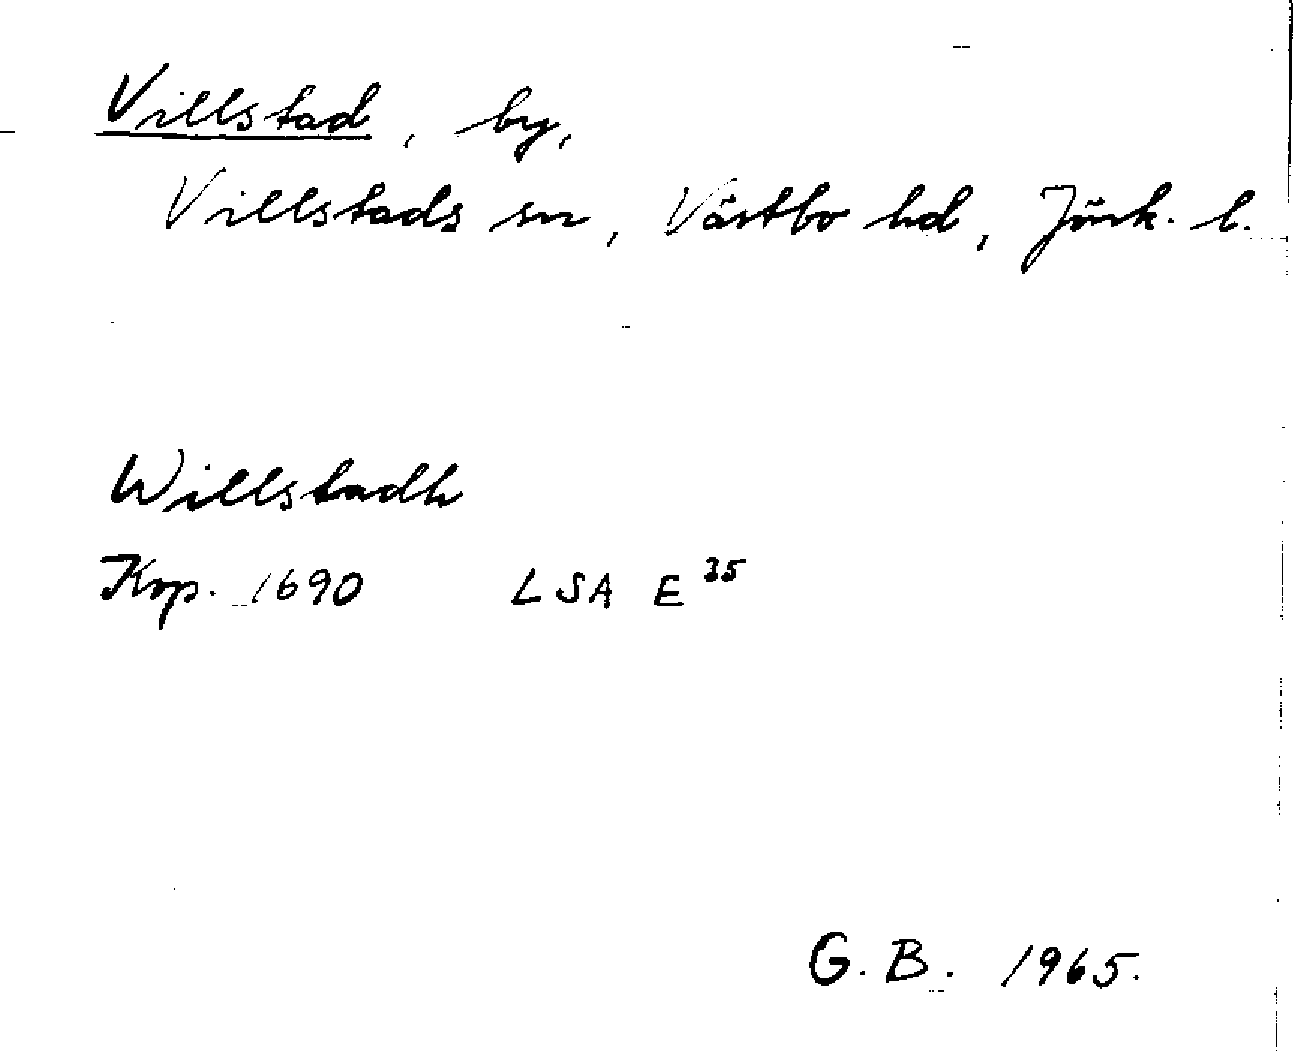 Villstad, by,
Villstads sn, Västbo hd, Jönk. l.
Willstadh
Kop. 1690 LSA E 35
G. B. 1965.